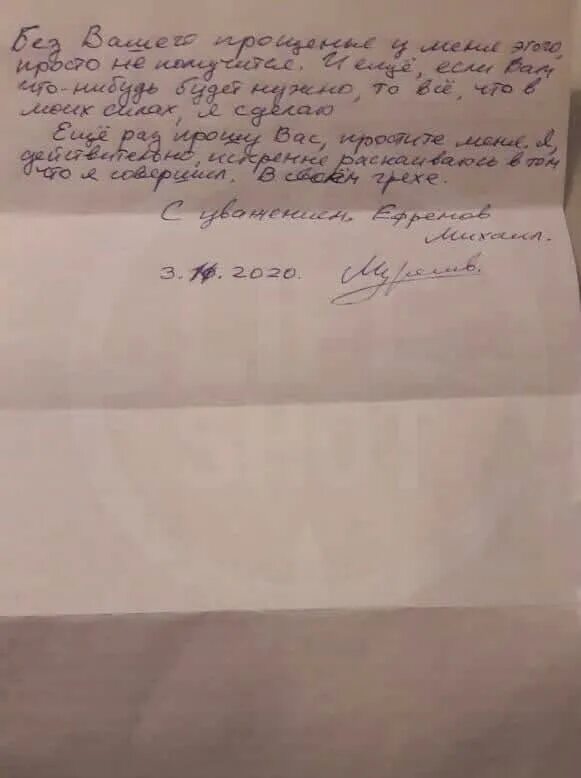 Без Вашего прощенье у меня этого,
просто не получится. И ещё, если Вам
что-нибудь будет нужно, то всё, что в
моих силах, я сделаю
Ещё раз прошу Вас, простите меня. Я,
действительно, искренне раскаиваюсь в том
что я совершил. В своём грехе.
С уважением, Ефремов
Михаил.
3. .2020.
SHOT